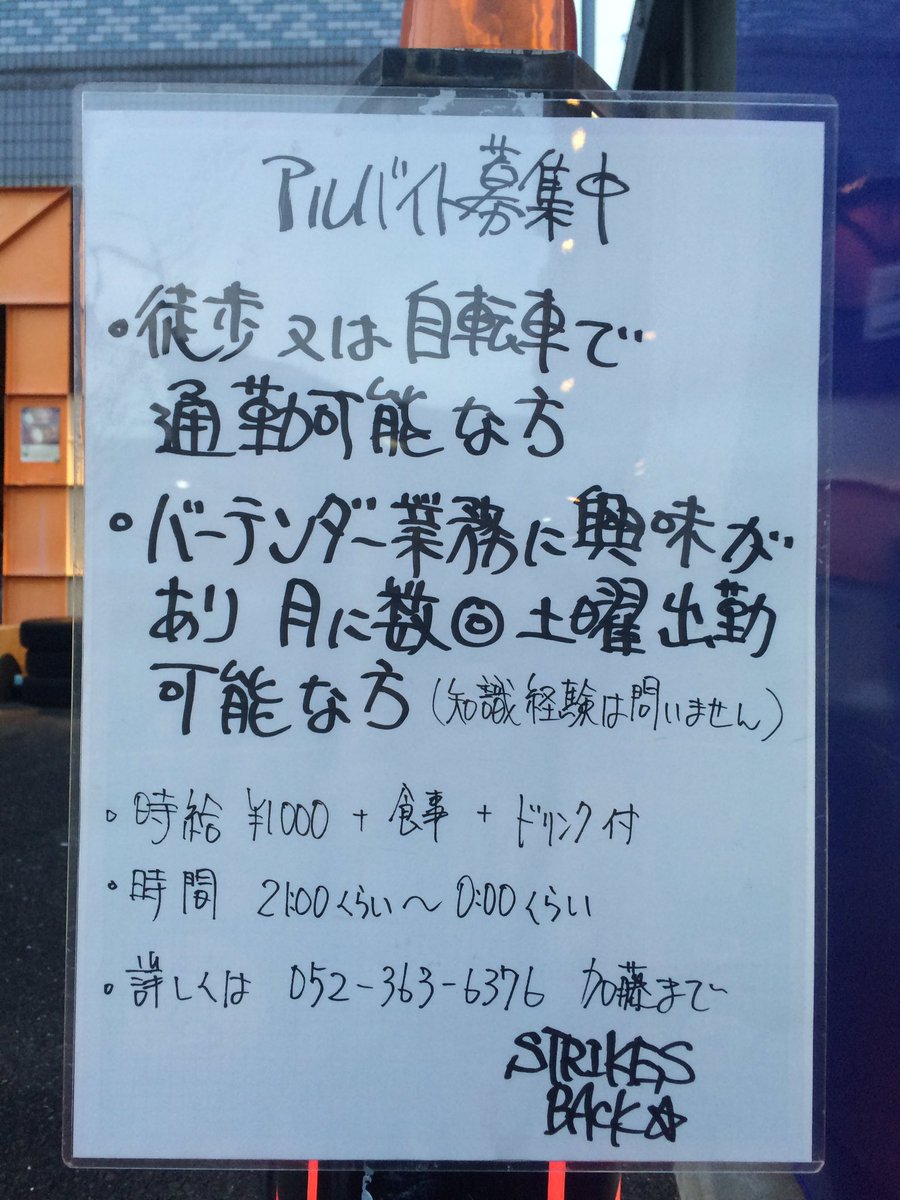 アルバイト募集中
・徒歩又は自転車で
通勤可能な方
・バーテンダー業務に興味が
あり 月に数回土曜出勤
可能な方(知識経験は問いません)
・時給 ¥1000 + 食事 + ドリンク付
・時間 21:00くらい〜0:00くらい
・詳しくは 052-363-6376 加藤まで
STRIKES
BACK☆